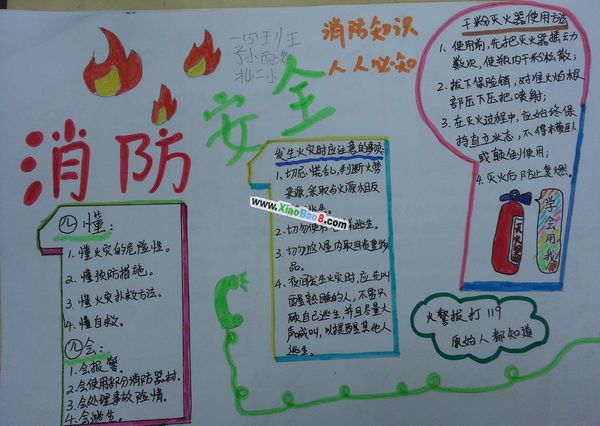 消防安全
消防知识
人人必知
四懂：
1. 懂火灾的危险性。
2. 懂预防措施。
3. 懂火灾扑救方法。
4. 懂自救。
四会：
1. 会报警。
2. 会使用部分消防器材。
3. 会处理事故险情。
4. 会逃生。
发生火灾时应注意的事项
1. 切忌慌乱，判断火势
来源，采取与火源相反
www.XiaoBao8.com
2. 切勿使用
逃生。
3. 切勿返入屋内取回贵重物
品。
4. 夜间发生火灾时，应先叫
醒熟睡的人，不要只
顾自己逃生，并且尽量大
声喊叫，以提醒其他人
逃生。
干粉灭火器使用方法
1. 使用前，先把灭火器摇动
数次，使瓶内干粉松散；
2. 拔下保险销，对准火焰根
部压下压把喷射；
3. 在灭火过程中，应始终保
持直立状态，不得横卧
或颠倒使用；
4. 灭火后防止复燃。
灭火器
学会用我
火警拨打119
原始人都知道